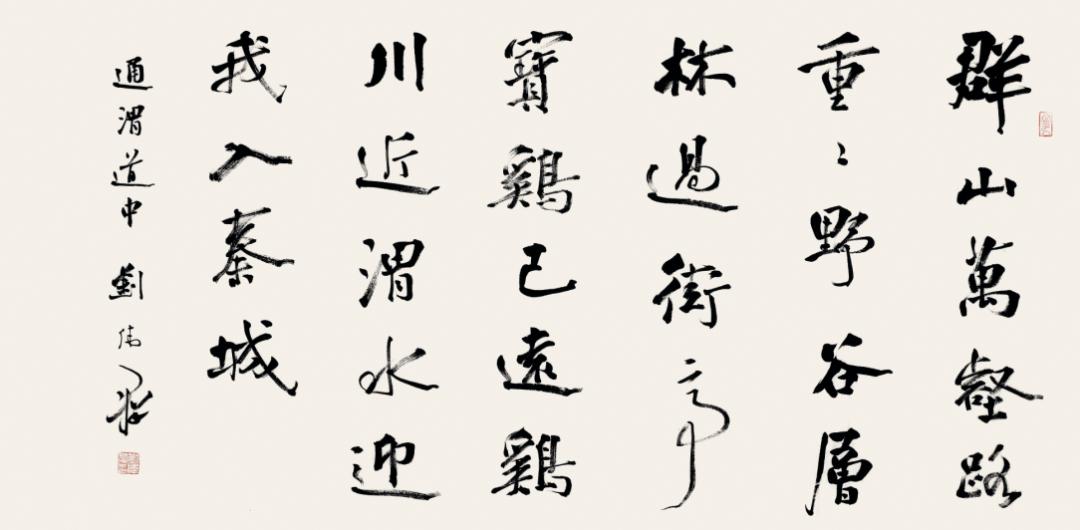 群山萬壑路
重〻野谷層
林過街亭
寶鷄已遠鷄
川近渭水迎
我入秦城
通渭道中 劉偉